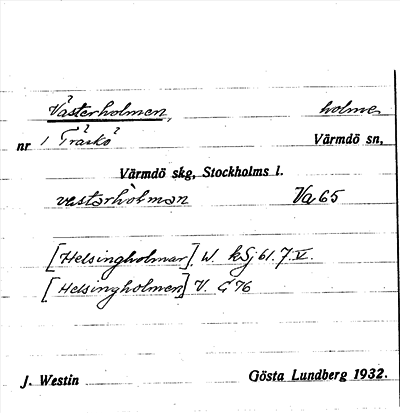 Västerholmen, holme
nr 1 Träskö Värmdö sn,
Värmdö skg, Stockholms l.
västərhòlmən Va 65
[Helsingholmar] W. kSj 61. 7. V.
[Helsingholmen] V. G 76
J. Westin Gösta Lundberg 1932.